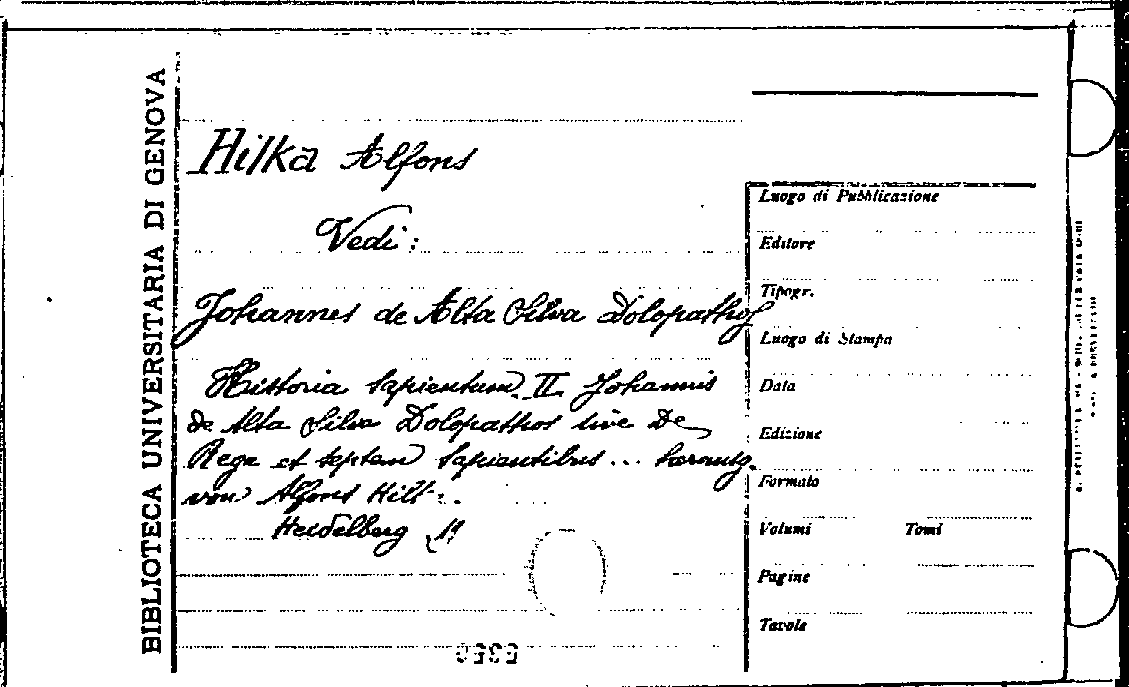 BIBLIOTECA UNIVERSITARIA DI GENOVA
Hilka Alfons
Vedi:
Johannes de Alta Silva Dolopathos
Historia sapientum II Johannis
de Alta Silva Dolopathos sive De
Rege et septem sapientibus... herausg.
von Alfons Hilk..
Heidelberg
Luogo di Pubblicazione
Editore
Tipogr.
Luogo di Stampa
Data
Edizione
Formato
Volumi Tomi
Pagine
Tavole